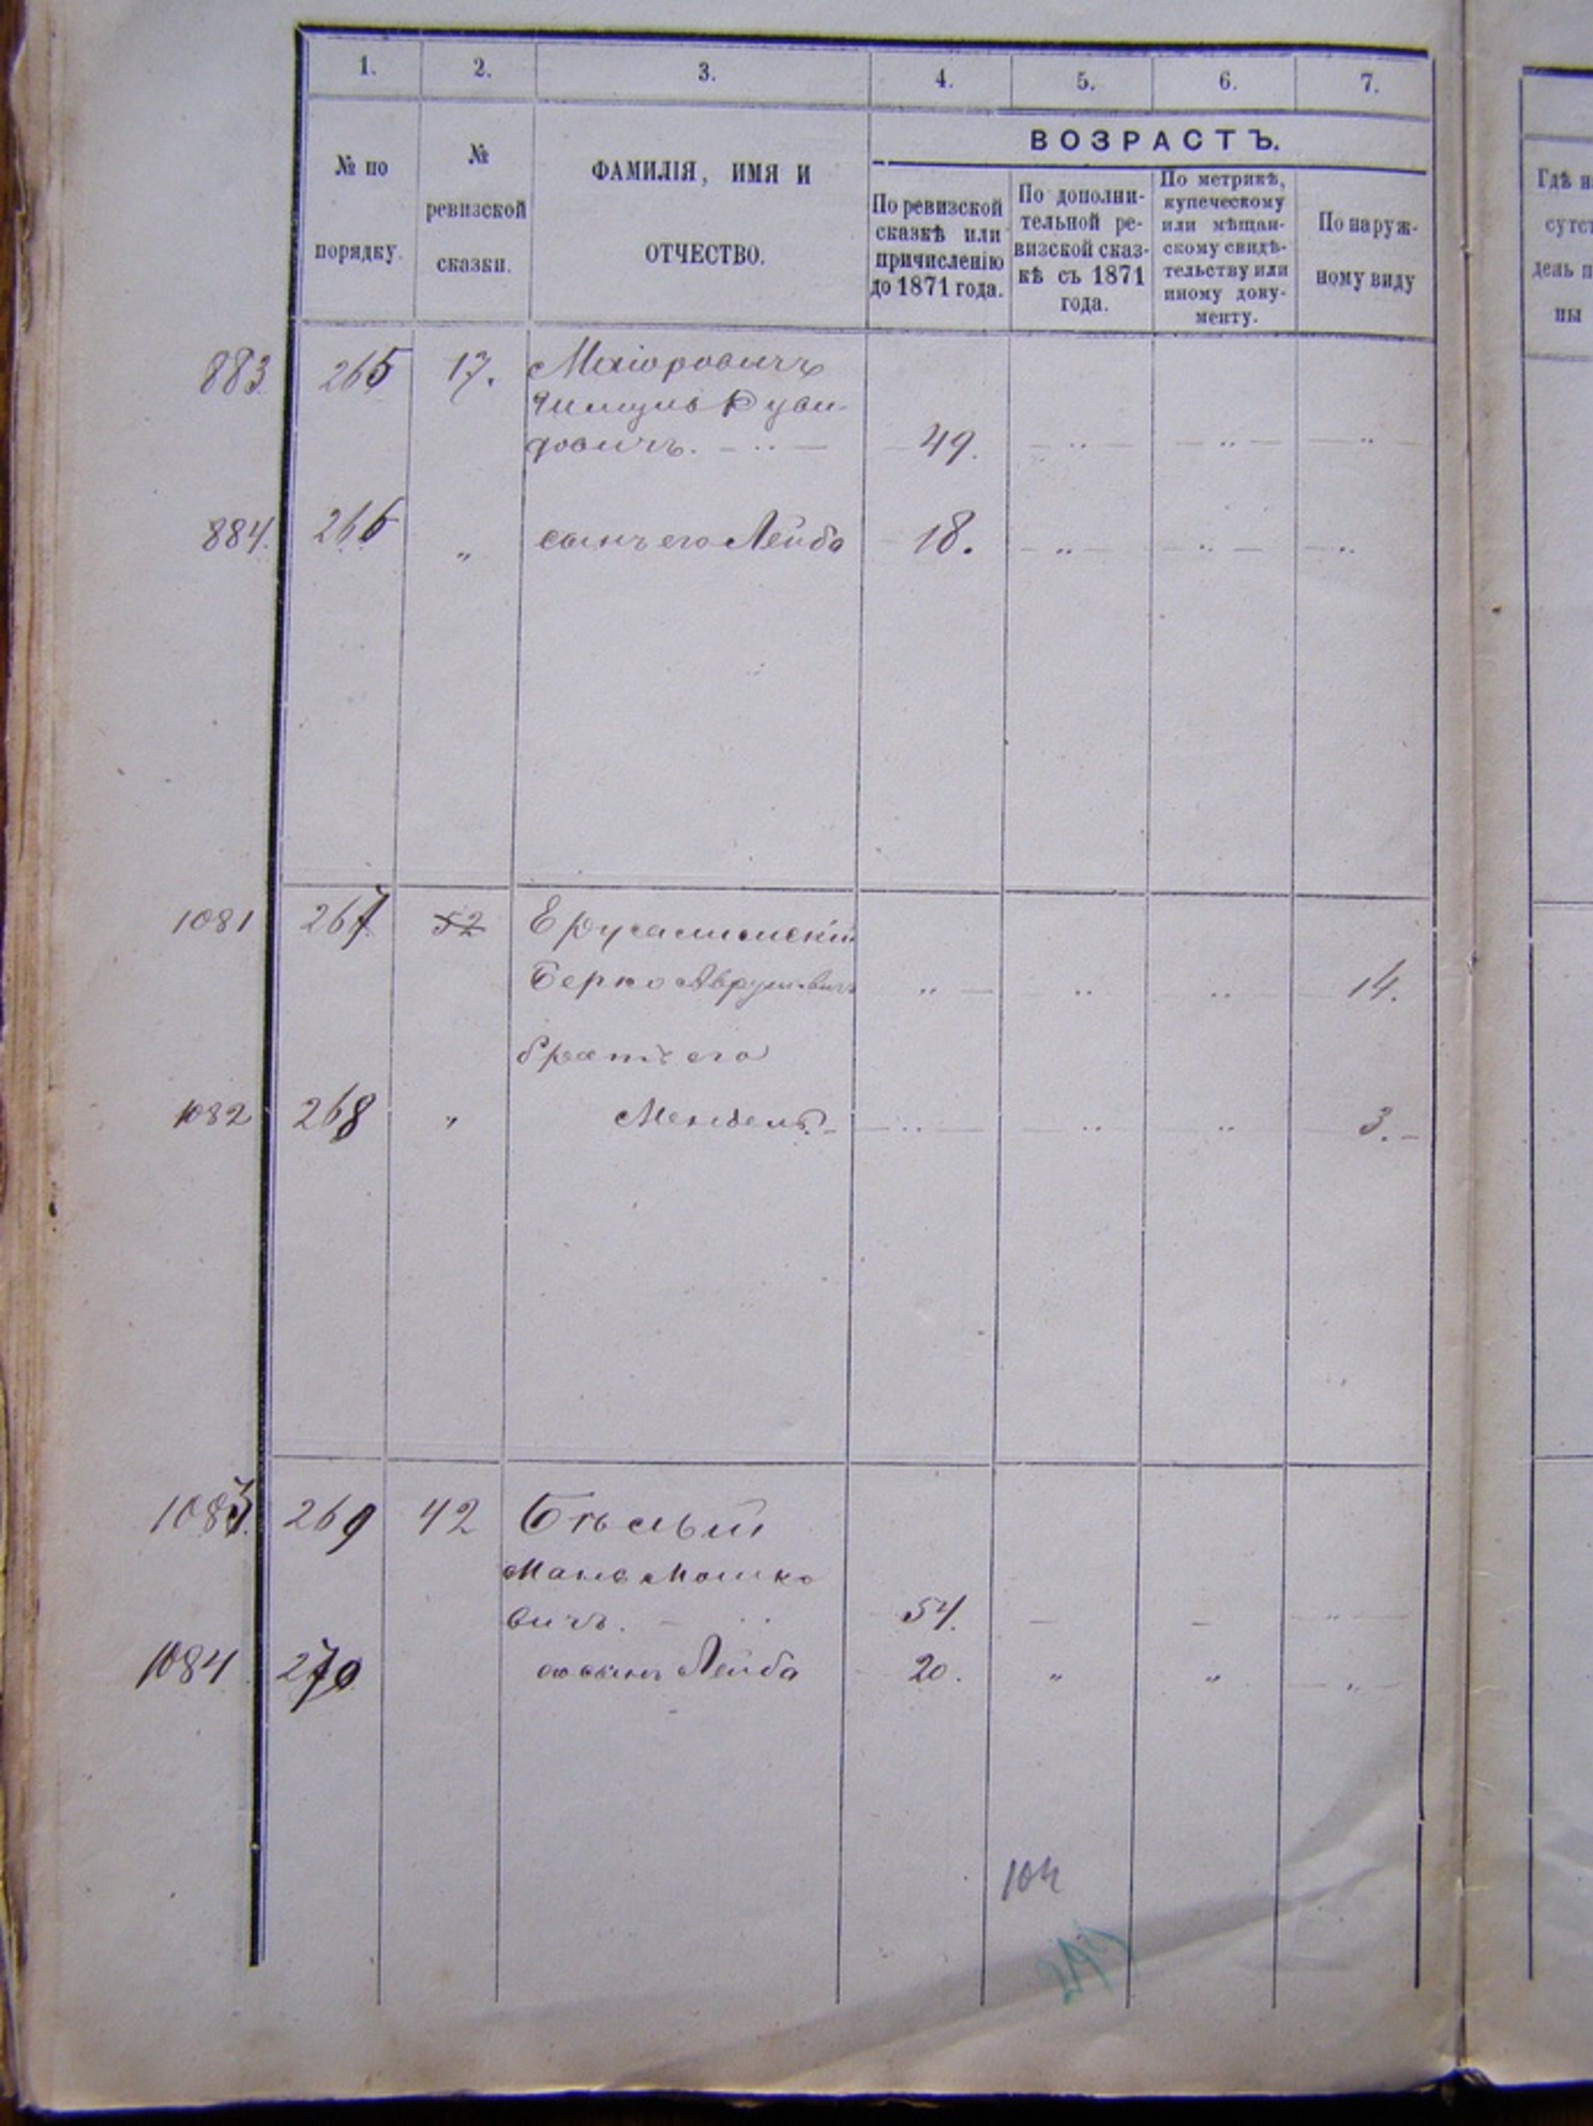 1. 2. 3. 4. 5. 6. 7.
№ по порядку.
№ ревизской сказки.
ФАМИЛІЯ, ИМЯ И
ОТЧЕСТВО.
ВОЗРАСТЪ.
По ревизской
сказкѣ или
причисленію
до 1871 года.
По дополни-
тельной ре-
визской сказ-
кѣ съ 1871
года.
По метрикѣ,
купеческому
или мѣщан-
скому свидѣ-
тельству или
иному доку-
менту.
По наруж-
ному виду
Гдѣ н
сутст
день п
ны
883 265 17. Маіоровичъ
Руви-
довичъ. - " - 49. - " - - " - - " -
884. 266 " сынъ его Лейба 18. - " - - " - - " -
1081 267 52 Ерусалимскій
Берко Аврумовичъ " - " " 14.
братъ его
1082 268 " Мендель. - - " - - " " 3. -
1083. 269 42 Бѣлый
Мошко
вичъ. - " 54. - - "
1084 270 сынъ Лейба 20. " " "
104